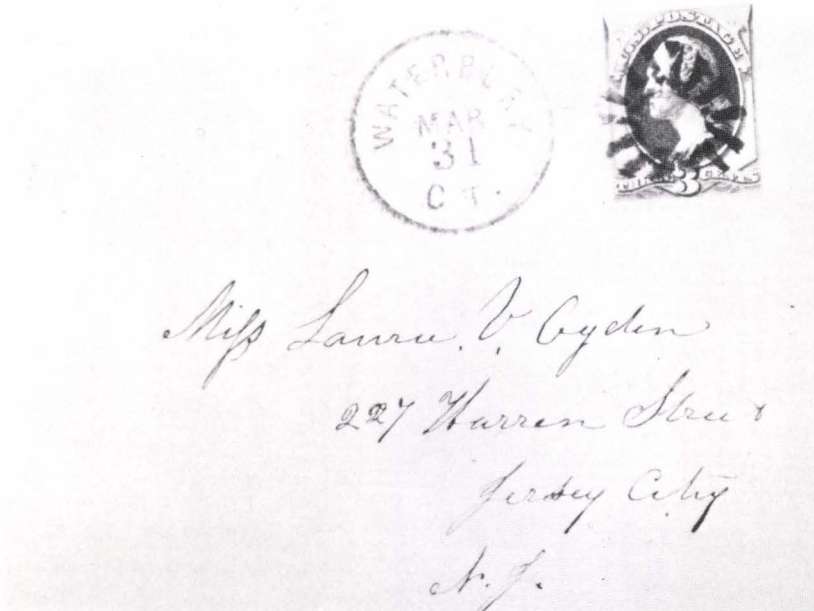 WATERBURY
MAR
31
CT.
U.S. POSTAGE
THREE 3 CENTS
Miss Laura. V. Ogden
227 Warren Street
Jersey City
N. J.